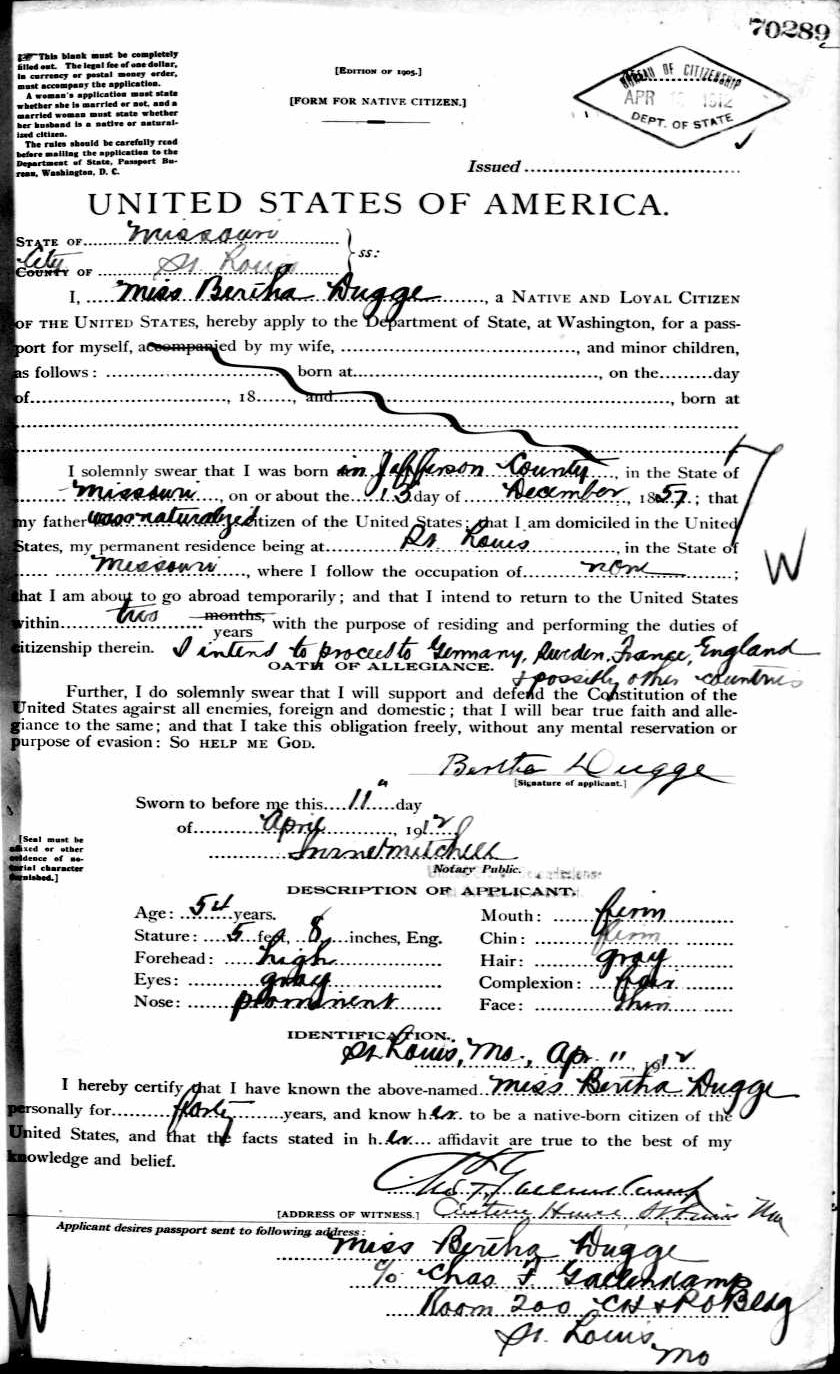 70289
☞ This blank must be completely
filled out. The legal fee of one dollar,
in currency or postal money order,
must accompany the application.
A woman's application must state
whether she is married or not, and a
married woman must state whether
her husband is a native or natural-
ized citizen.
The rules should be carefully read
before mailing the application to the
Department of State, Passport Bu-
reau, Washington, D. C.
[EDITION OF 1905.]
[FORM FOR NATIVE CITIZEN.]
BUREAU OF CITIZENSHIP
APR 1912
DEPT. OF STATE
Issued
UNITED STATES OF AMERICA.
STATE OF Missouri
City
COUNTY OF St. Louis ss:
I, Miss Bertha Dugge, a NATIVE AND LOYAL CITIZEN
OF THE UNITED STATES, hereby apply to the Department of State, at Washington, for a pass-
port for myself, accompanied by my wife, , and minor children,
as follows: born at , on the day
of , 18 , and , born at
I solemnly swear that I was born in Jefferson County, in the State of
Missouri, on or about the 13 day of December, 1857; that
my father was naturalized citizen of the United States; that I am domiciled in the United
States, my permanent residence being at St. Louis, in the State of
Missouri, where I follow the occupation of none;
that I am about to go abroad temporarily; and that I intend to return to the United States
within two months, years with the purpose of residing and performing the duties of
citizenship therein. I intend to proceed to Germany, Sweden, France, England
& possibly other countries
OATH OF ALLEGIANCE.
Further, I do solemnly swear that I will support and defend the Constitution of the
United States against all enemies, foreign and domestic; that I will bear true faith and alle-
giance to the same; and that I take this obligation freely, without any mental reservation or
purpose of evasion: SO HELP ME GOD.
Bertha Dugge
[Signature of applicant.]
Sworn to before me this 11" day
of April, 1912
Mitchell
Notary Public.
[Seal must be
affixed or other
evidence of no-
tarial character
furnished.]
DESCRIPTION OF APPLICANT.
Age: 54 years. Mouth: firm
Stature: 5 feet, 8 inches, Eng. Chin: firm
Forehead: high Hair: gray
Eyes: gray Complexion: fair
Nose: prominent Face: thin
IDENTIFICATION.
St. Louis, Mo., Apr. 11 1912
I hereby certify that I have known the above-named Miss Bertha Dugge
personally for forty years, and know her to be a native-born citizen of the
United States, and that the facts stated in her affidavit are true to the best of my
knowledge and belief.
Chas F Gallenkamp
[ADDRESS OF WITNESS.] Custom House St Louis Mo
Applicant desires passport sent to following address:
Miss Bertha Dugge
c/o Chas F. Gallenkamp
Room 200 CH & PO Bldg
St. Louis
Mo
W
W